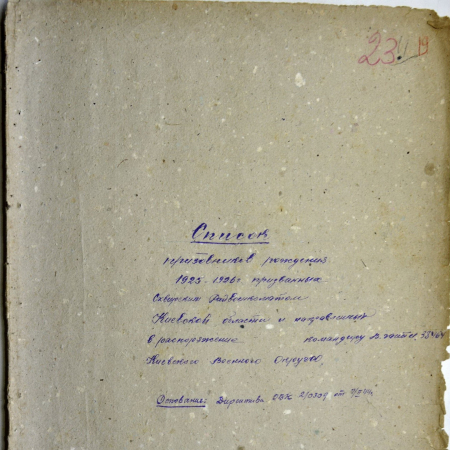 23 19
Список
призовников рождения
1925-1926г. призванных
Сквирским Райвоенкоматом
Киевской области и направленых
в распоряжение командиру
Киевского Военного Округа
Основание: Директива от